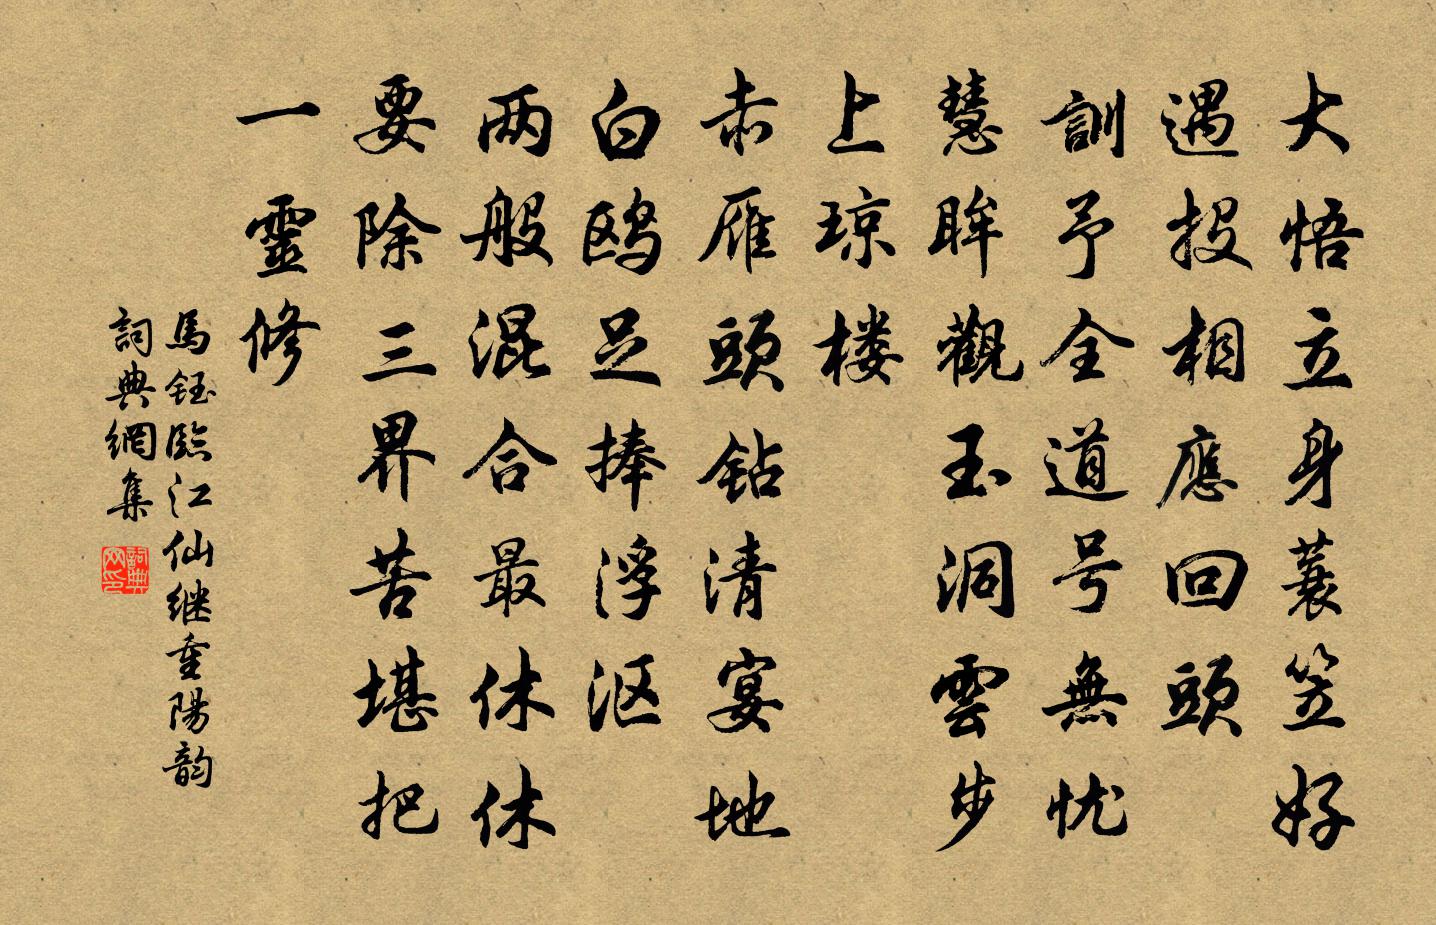 大悟立身蓑笠好
遇投相應回頭
訓予全道号無忧
慧眸觀玉洞雲步
上琼楼
赤雁頭鉆清宴地
白鸥足捧浮沤
两般混合最休休
要除三界苦堪把
一靈修
馬鈺臨江仙继重陽韵
詞典網集
詞典网印